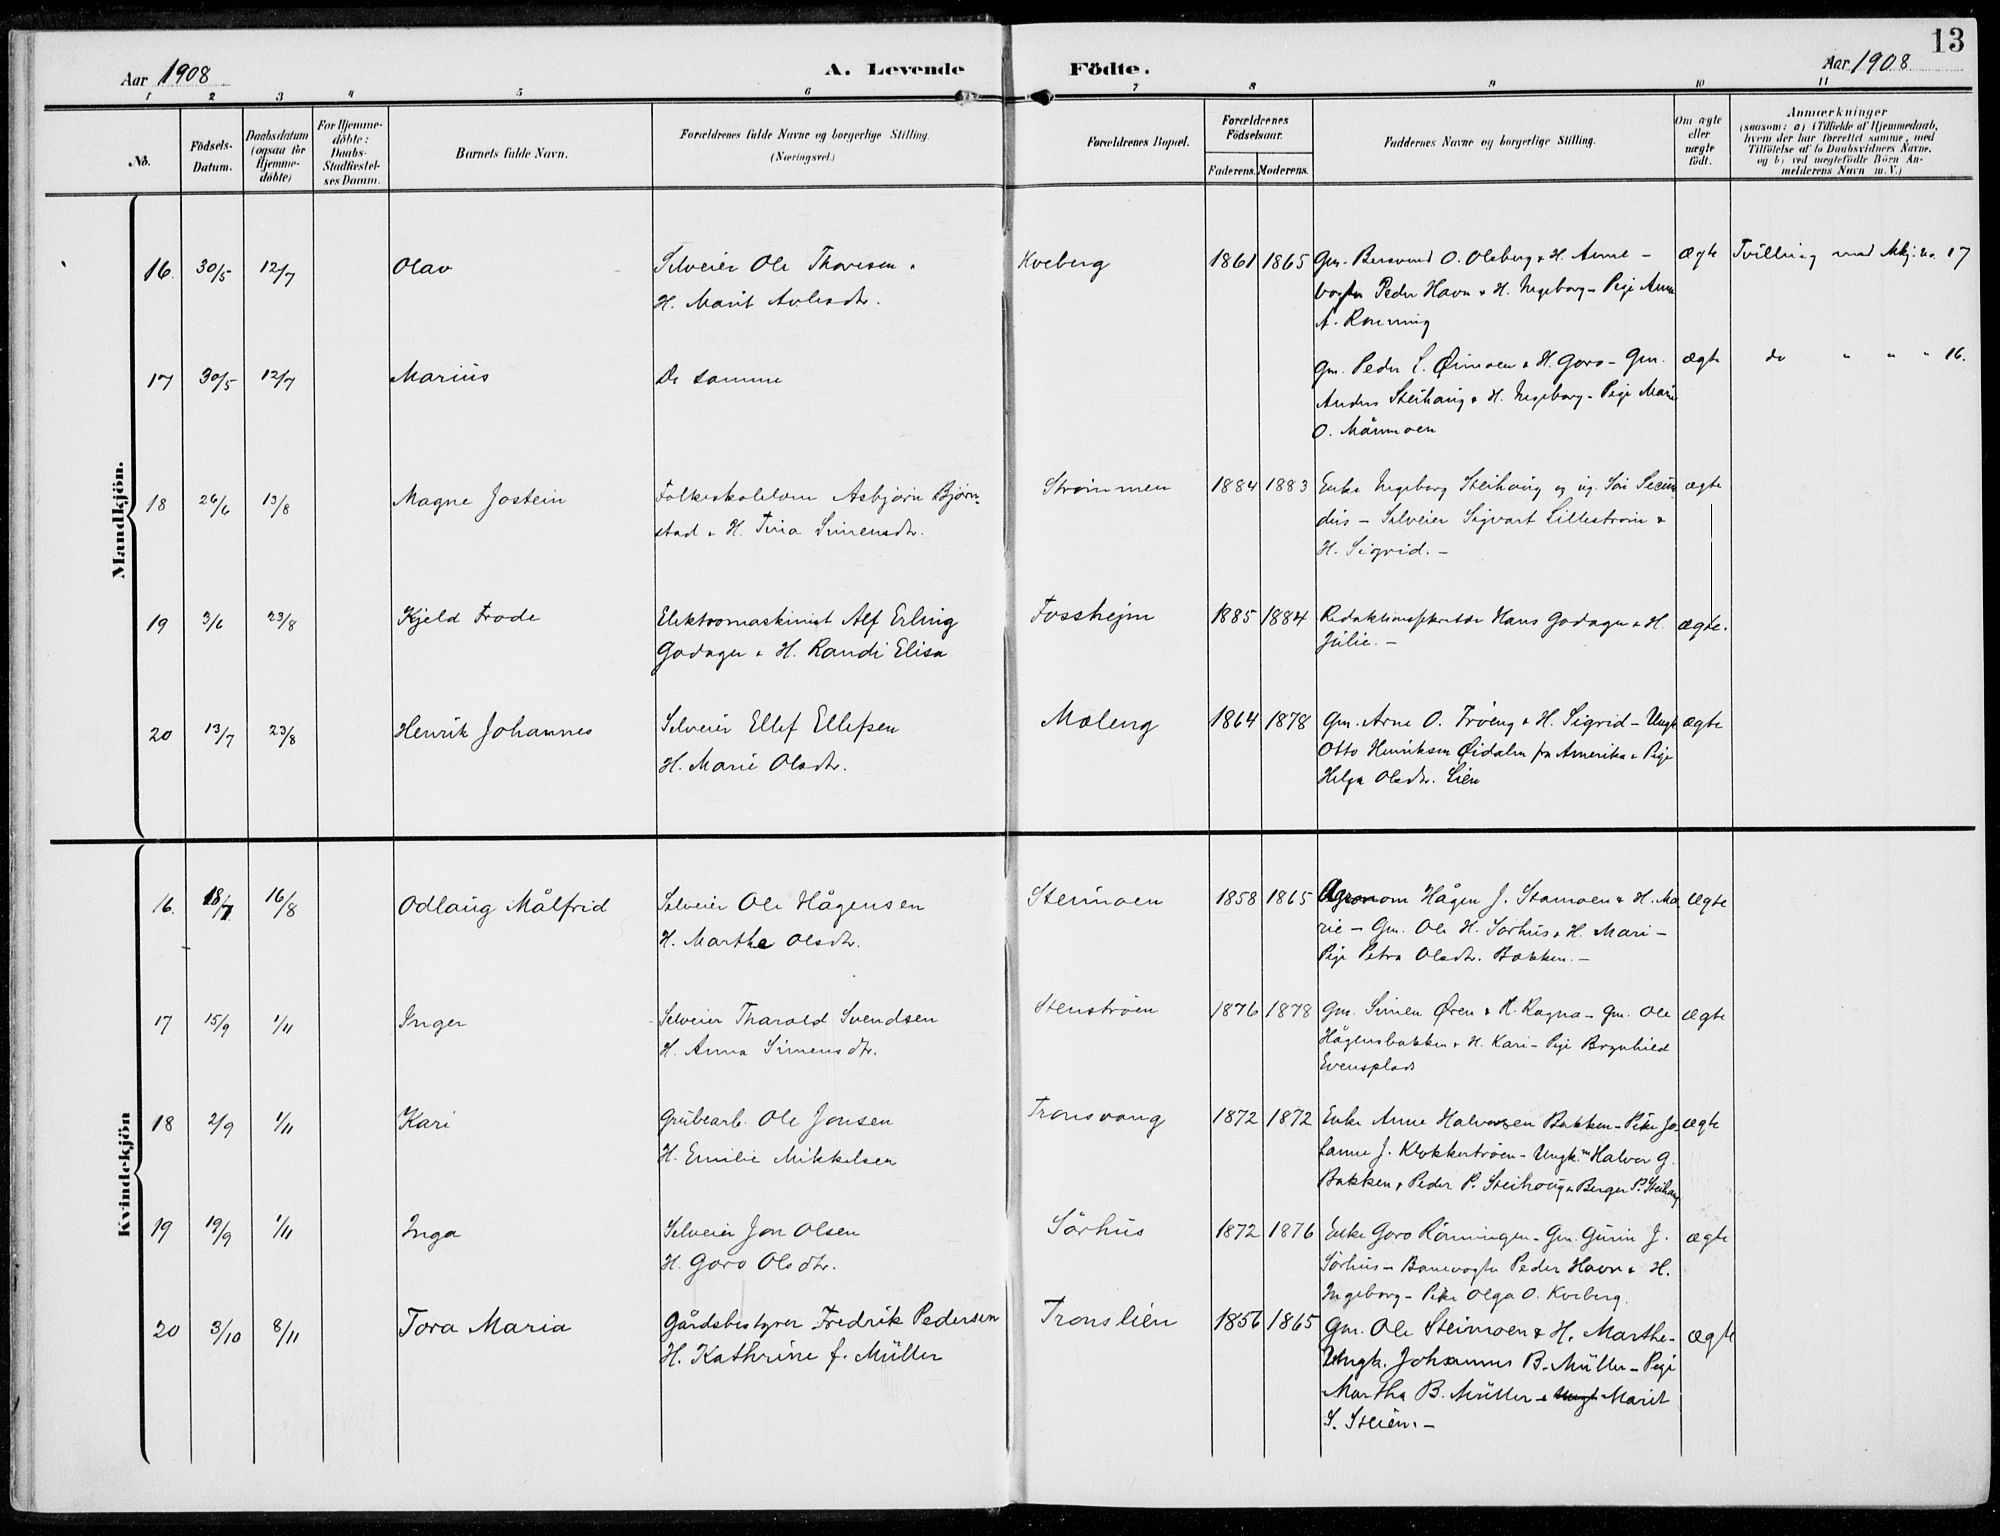 13
Aar 1908
A. Levende Födte.
Aar 1908
1 2 3 4 5 6 7 8 9 10 11
No.
Födsels-Datum.
Daabsdatum (ogsaa for Hjemme-döbte)
For Hjemme-döbte: Daabs-Stadfæstel-ses Datum.
Barnets fulde Navn.
Forældrenes fulde Navne og borgerlige Stilling. (Næringsvei.)
Forældrenes Bopæl.
Forældrenes Födselsaar.
Faderens. Moderens.
Faddernes Navne og borgerlige Stilling.
Om ægte eller uægte födt.
Anmærkninger
(saasom: a) i Tilfælde af Hjemmedaab,
hvem der har forrettet samme, med
Tilföielse af to Daabsvidners Navne,
og b) ved uægtefödte Börn An-
melderens Navn m. V.)
Mandkjön.
16. 30/5 12/7 Olav Selveier Ole Thoresen . Kveberg 1861 1865 Gm. Bersvend O. Oleberg & H. Anne – Ægte Tvilling med Mkj. no 17
H. Marit Avlesdtr. Peder Havn & H. Ingeborg – Pige Anne
A. Rønning
17 30/5 12/7 Marius De samme Gm. Peder L. Øimoen & H. Goro – Gm. ægte do " " " 16.
Anders Steihaug & H. Ingeborg – Pige Marie
O. Månmoen
18 26/6 13/8 Magne Jostein Folkeskolelærer Asbjørn Bjørn- Strømmen 1884 1883 Enke Ingeborg Steihaug og ug. Søn Secun ægte
stad & H. Tina Simensdtr. dus – Selveier Sigvart Lillestrøm &
H. Sigrid. –
19 3/6 23/8 Kjeld Frode Elektromaskinist Alf Erling Fossheim 1885 1884 Redaktionssekretær Hans Godager & H. ægte.
Godager & H. Randi Elisa Julie. –
20 13/7 23/8 Henrik Johannes Selveier Ellef Ellefsen Moleng 1864 1878 Gm. Arne O. Trøeng & H. Sigrid – Ungk. ægte
H. Marie Olsdtr. Otto Henriksen Øidalen fra Amerika & Pige
Helga Olsdtr. Lien
Kvindekjön
16. 18/7 16/8 Odlaug Målfrid Selveier Ole Hågensen Steimoen 1858 1865 Agronom Hågen J. Stamoen & H. Ma Ægte
H. Marthe Olsdtr. rie – Gm. Ole H. Sørhus & H. Mari –
Pige Petra Olsdtr. Bakken. –
17 15/9 1/11 Inger Selveier Tharald Svendsen Stenstrøen 1876 1878 Gm. Simen Øren & H. Ragna – Gm. Ole Ægte
H. Anna Simensdtr. Hågensbakken & H. Kari – Pige Brynhild
Evensplads
18 2/9 1/11 Kari Grubearb. Ole Jonsen Tronsvang 1872 1872 Enke Anne Halvorsen Bakken – Pike Jo- ægte
H. Emilie Mikkelsen hanne J. Klokkertrøen – Ungk.m Halvor G.
Bakken, Peder P. Steihaug & Berger P. Steihaug
19 19/9 1/11 Inga Selveier Jon Olsen Sørhus 1872 1876 Enke Goro Rønningen – Gm. Gurin J. ægte
H. Goro Olsdtr. Sørhus – Banevogter Peder Havn & H.
Ingeborg – Pike Olga O. Kveberg.
20 3/10 8/11 Tora Maria Gårdsbestyrer Fredrik Pedersen Tronslien 1856 1865 Gm. Ole Steimoen & H. Marthe – ægte
H. Kathrine f. Müller Ungk. Johannes B. Müller – Pige
Martha B. Müller & Marit
S. Steien. –